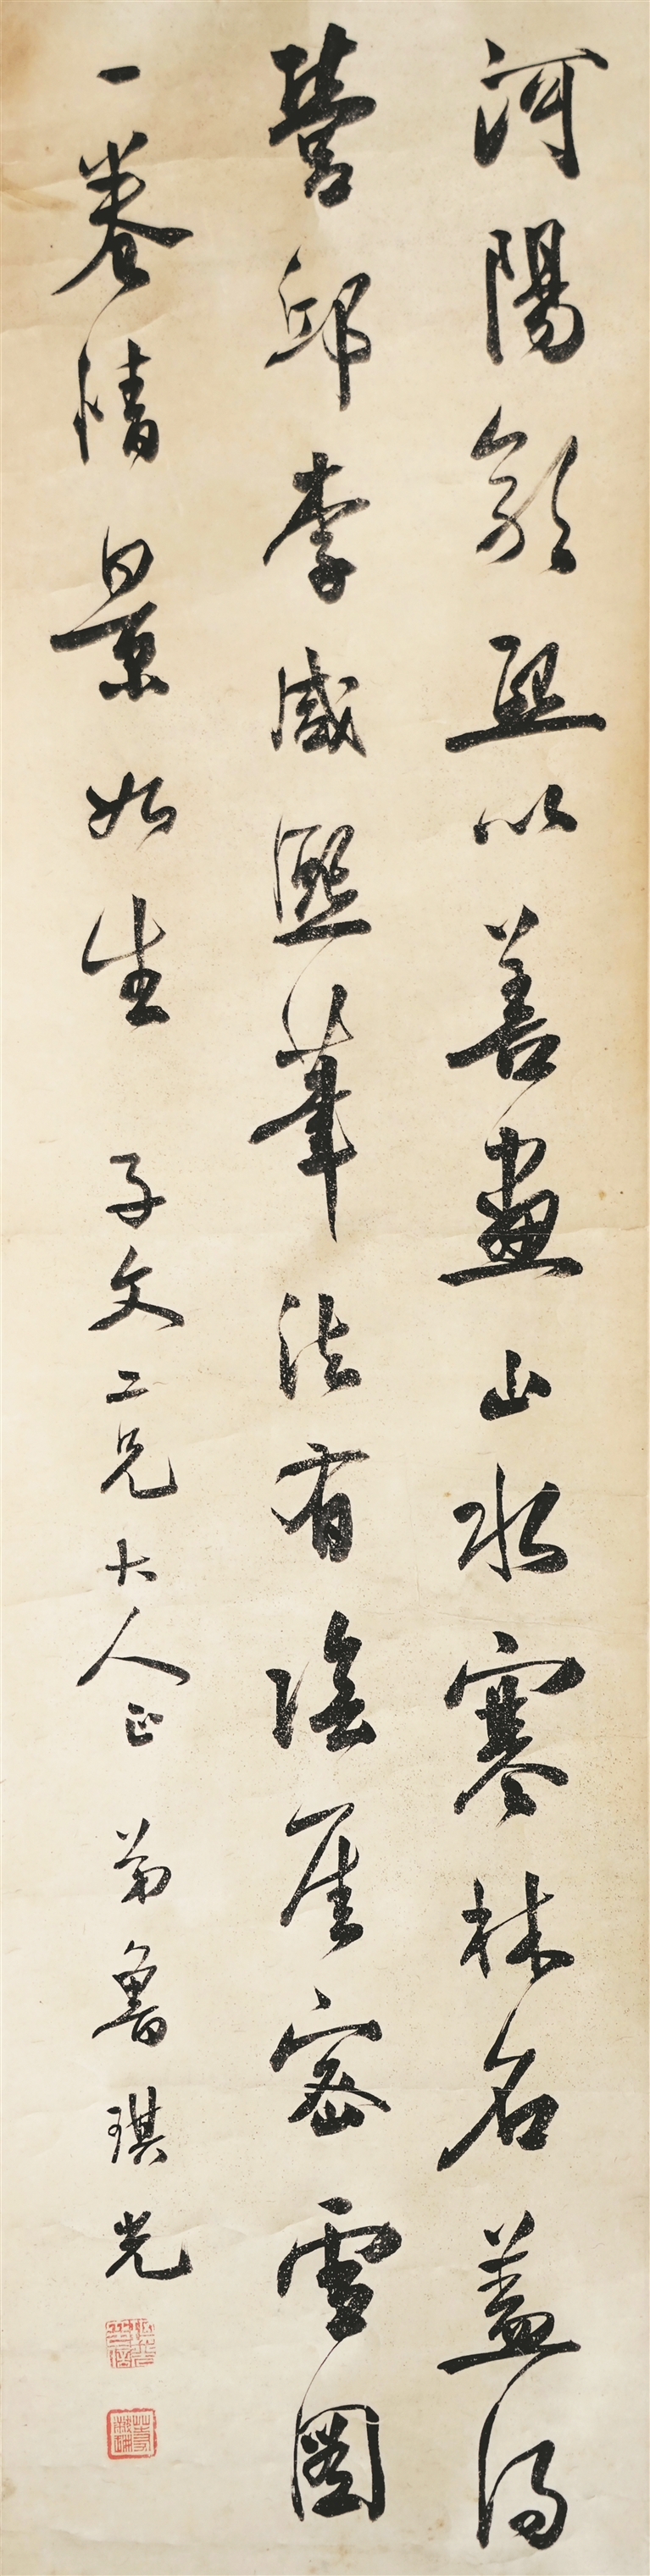 河陽郭熙以善畫山水寒林名蓋得
營邱李咸熙筆法有陰崖密雪圖
一卷情景如生 子文二兄大人正 弟魯琪光